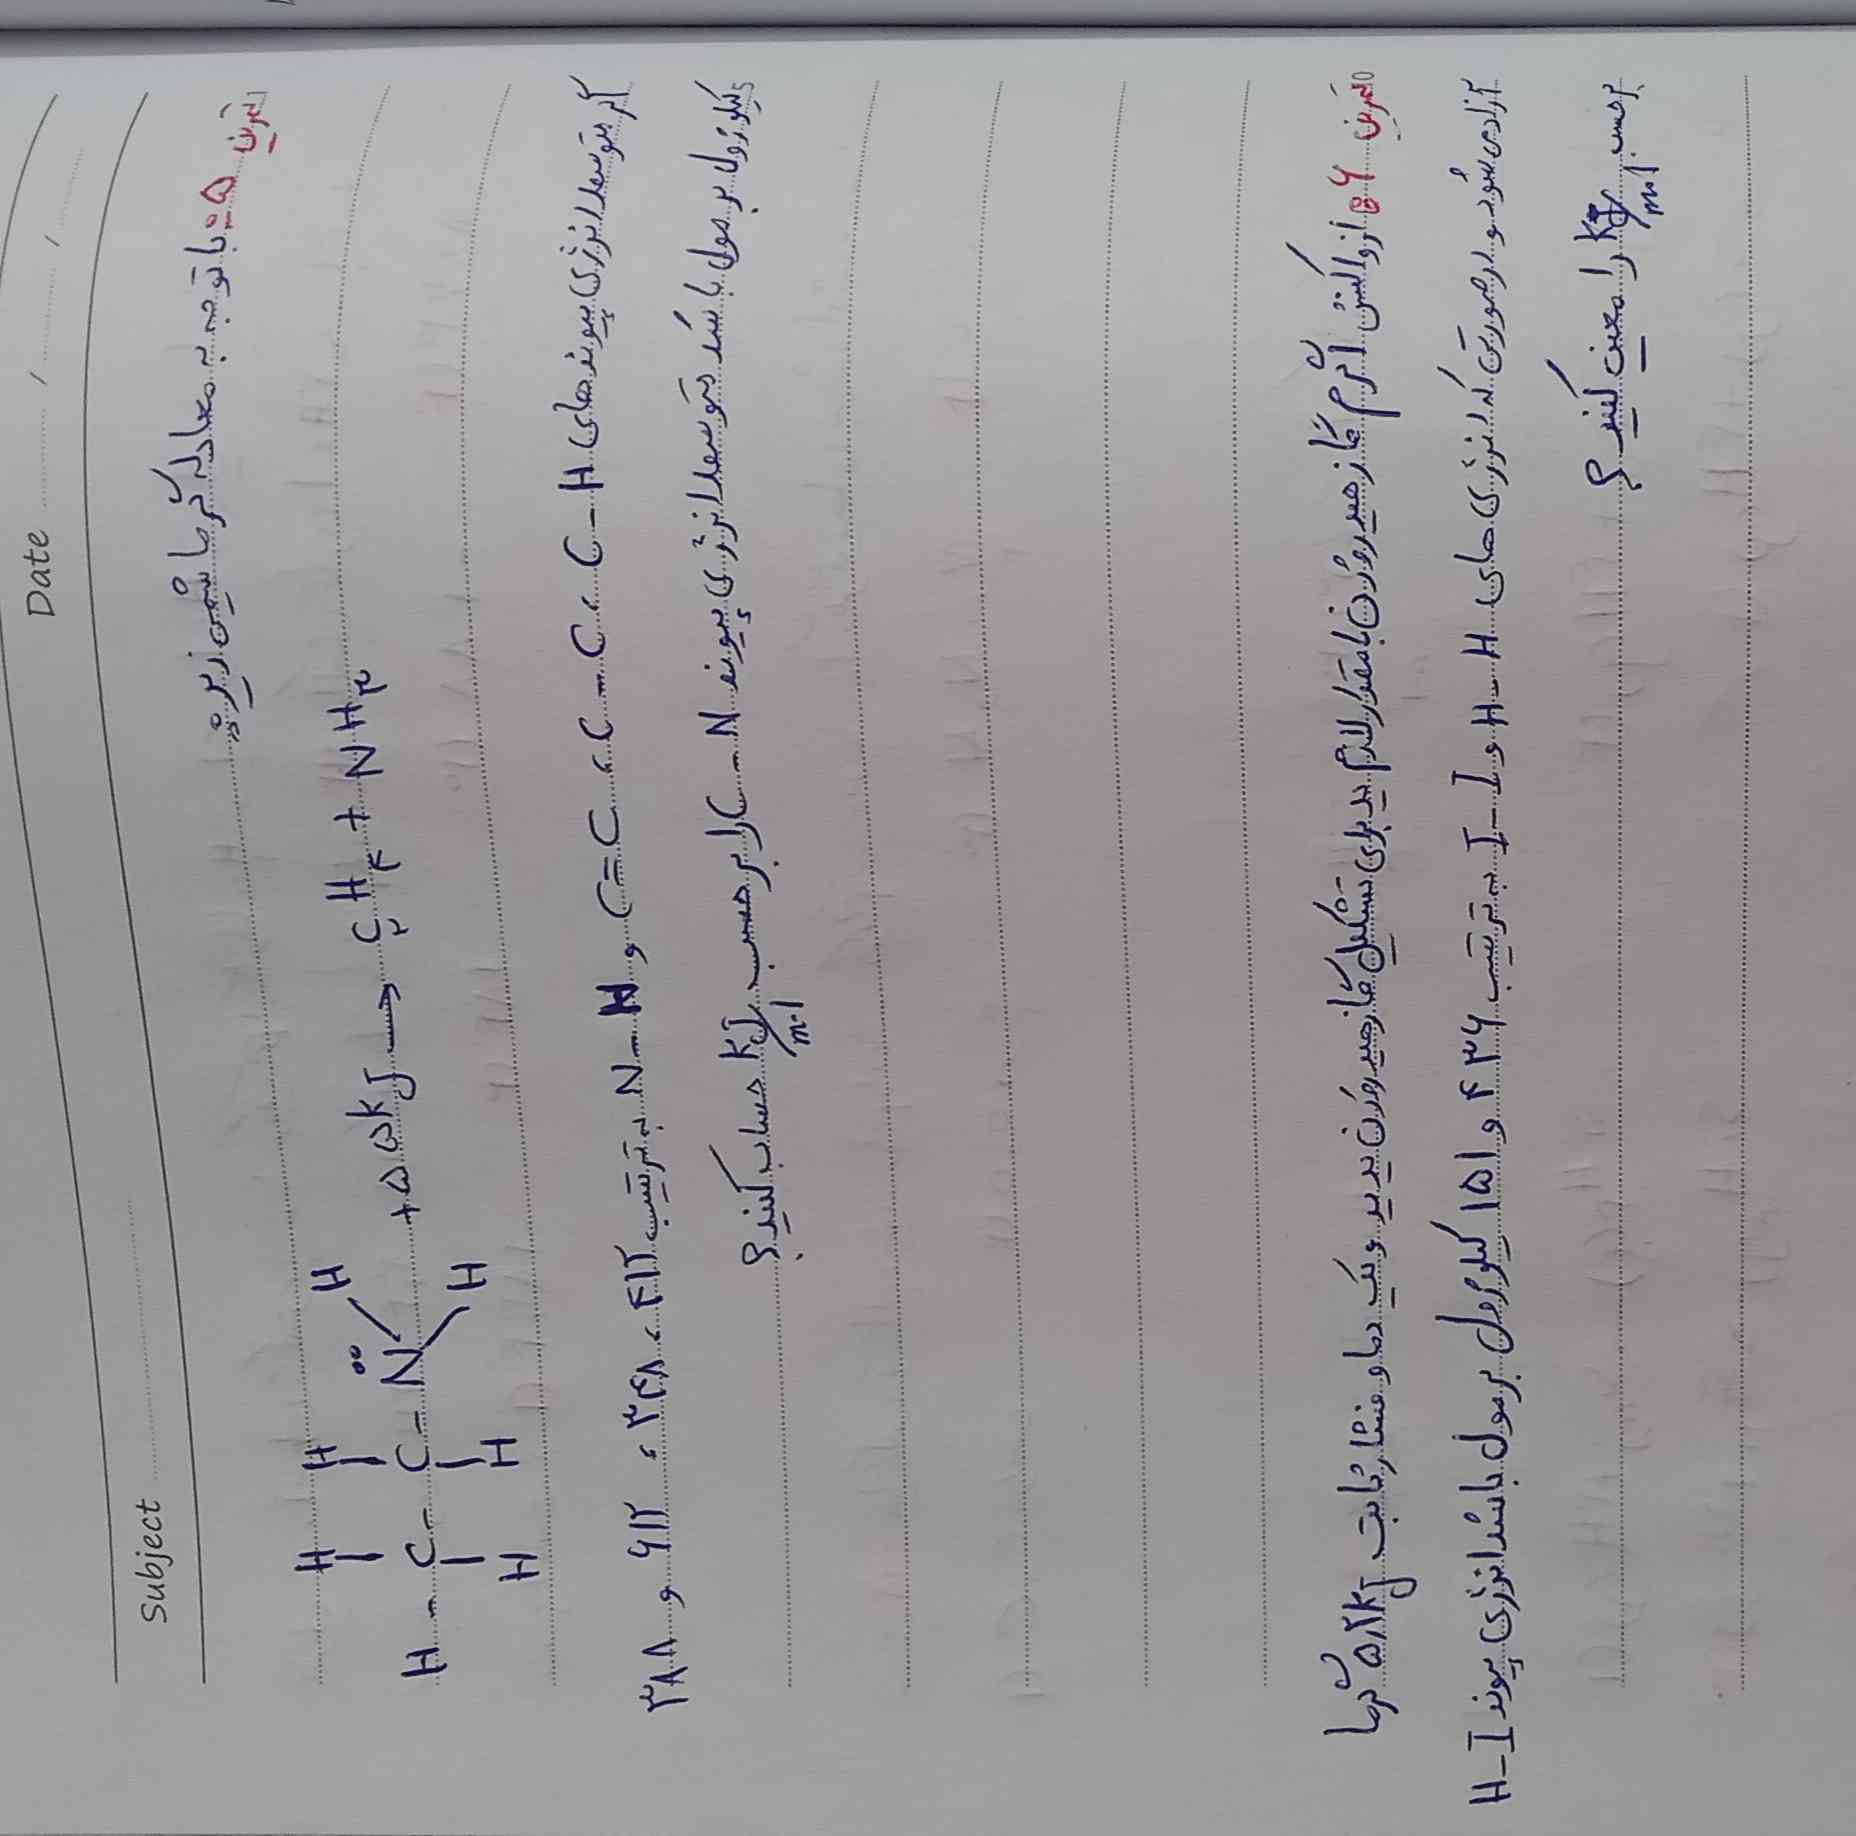 Date
Subject
تمرین ۵: با توجه به معادله گرماشیمی زیر:
H H H
H - C - C - N̈ + ۵۵ kJ → C₂H₄ + NH₃
H H H
اگر متوسط انرژی پیوندهای C - H ، C - C ، C = C و N - H به ترتیب ۴۱۲ ، ۳۴۸ ، ۶۱۲ و ۳۸۸
کیلوژول بر مول باشد متوسط انرژی پیوند C - N را بر حسب kJ/mol حساب کنید؟
تمرین ۶: از واکنش ۱ گرم گاز هیدروژن با مقدار لازم ید برای تشکیل گاز هیدروژن یدید و یک دما و فشار ثابت ۵٫۲ kJ گرما
آزاد می‌شود و در صورتی که انرژی های H - H و I - I به ترتیب ۴۳۶ و ۱۵۱ کیلوژول بر مول باشد انرژی پیوند H - I
برحسب kJ/mol را معین کنید؟